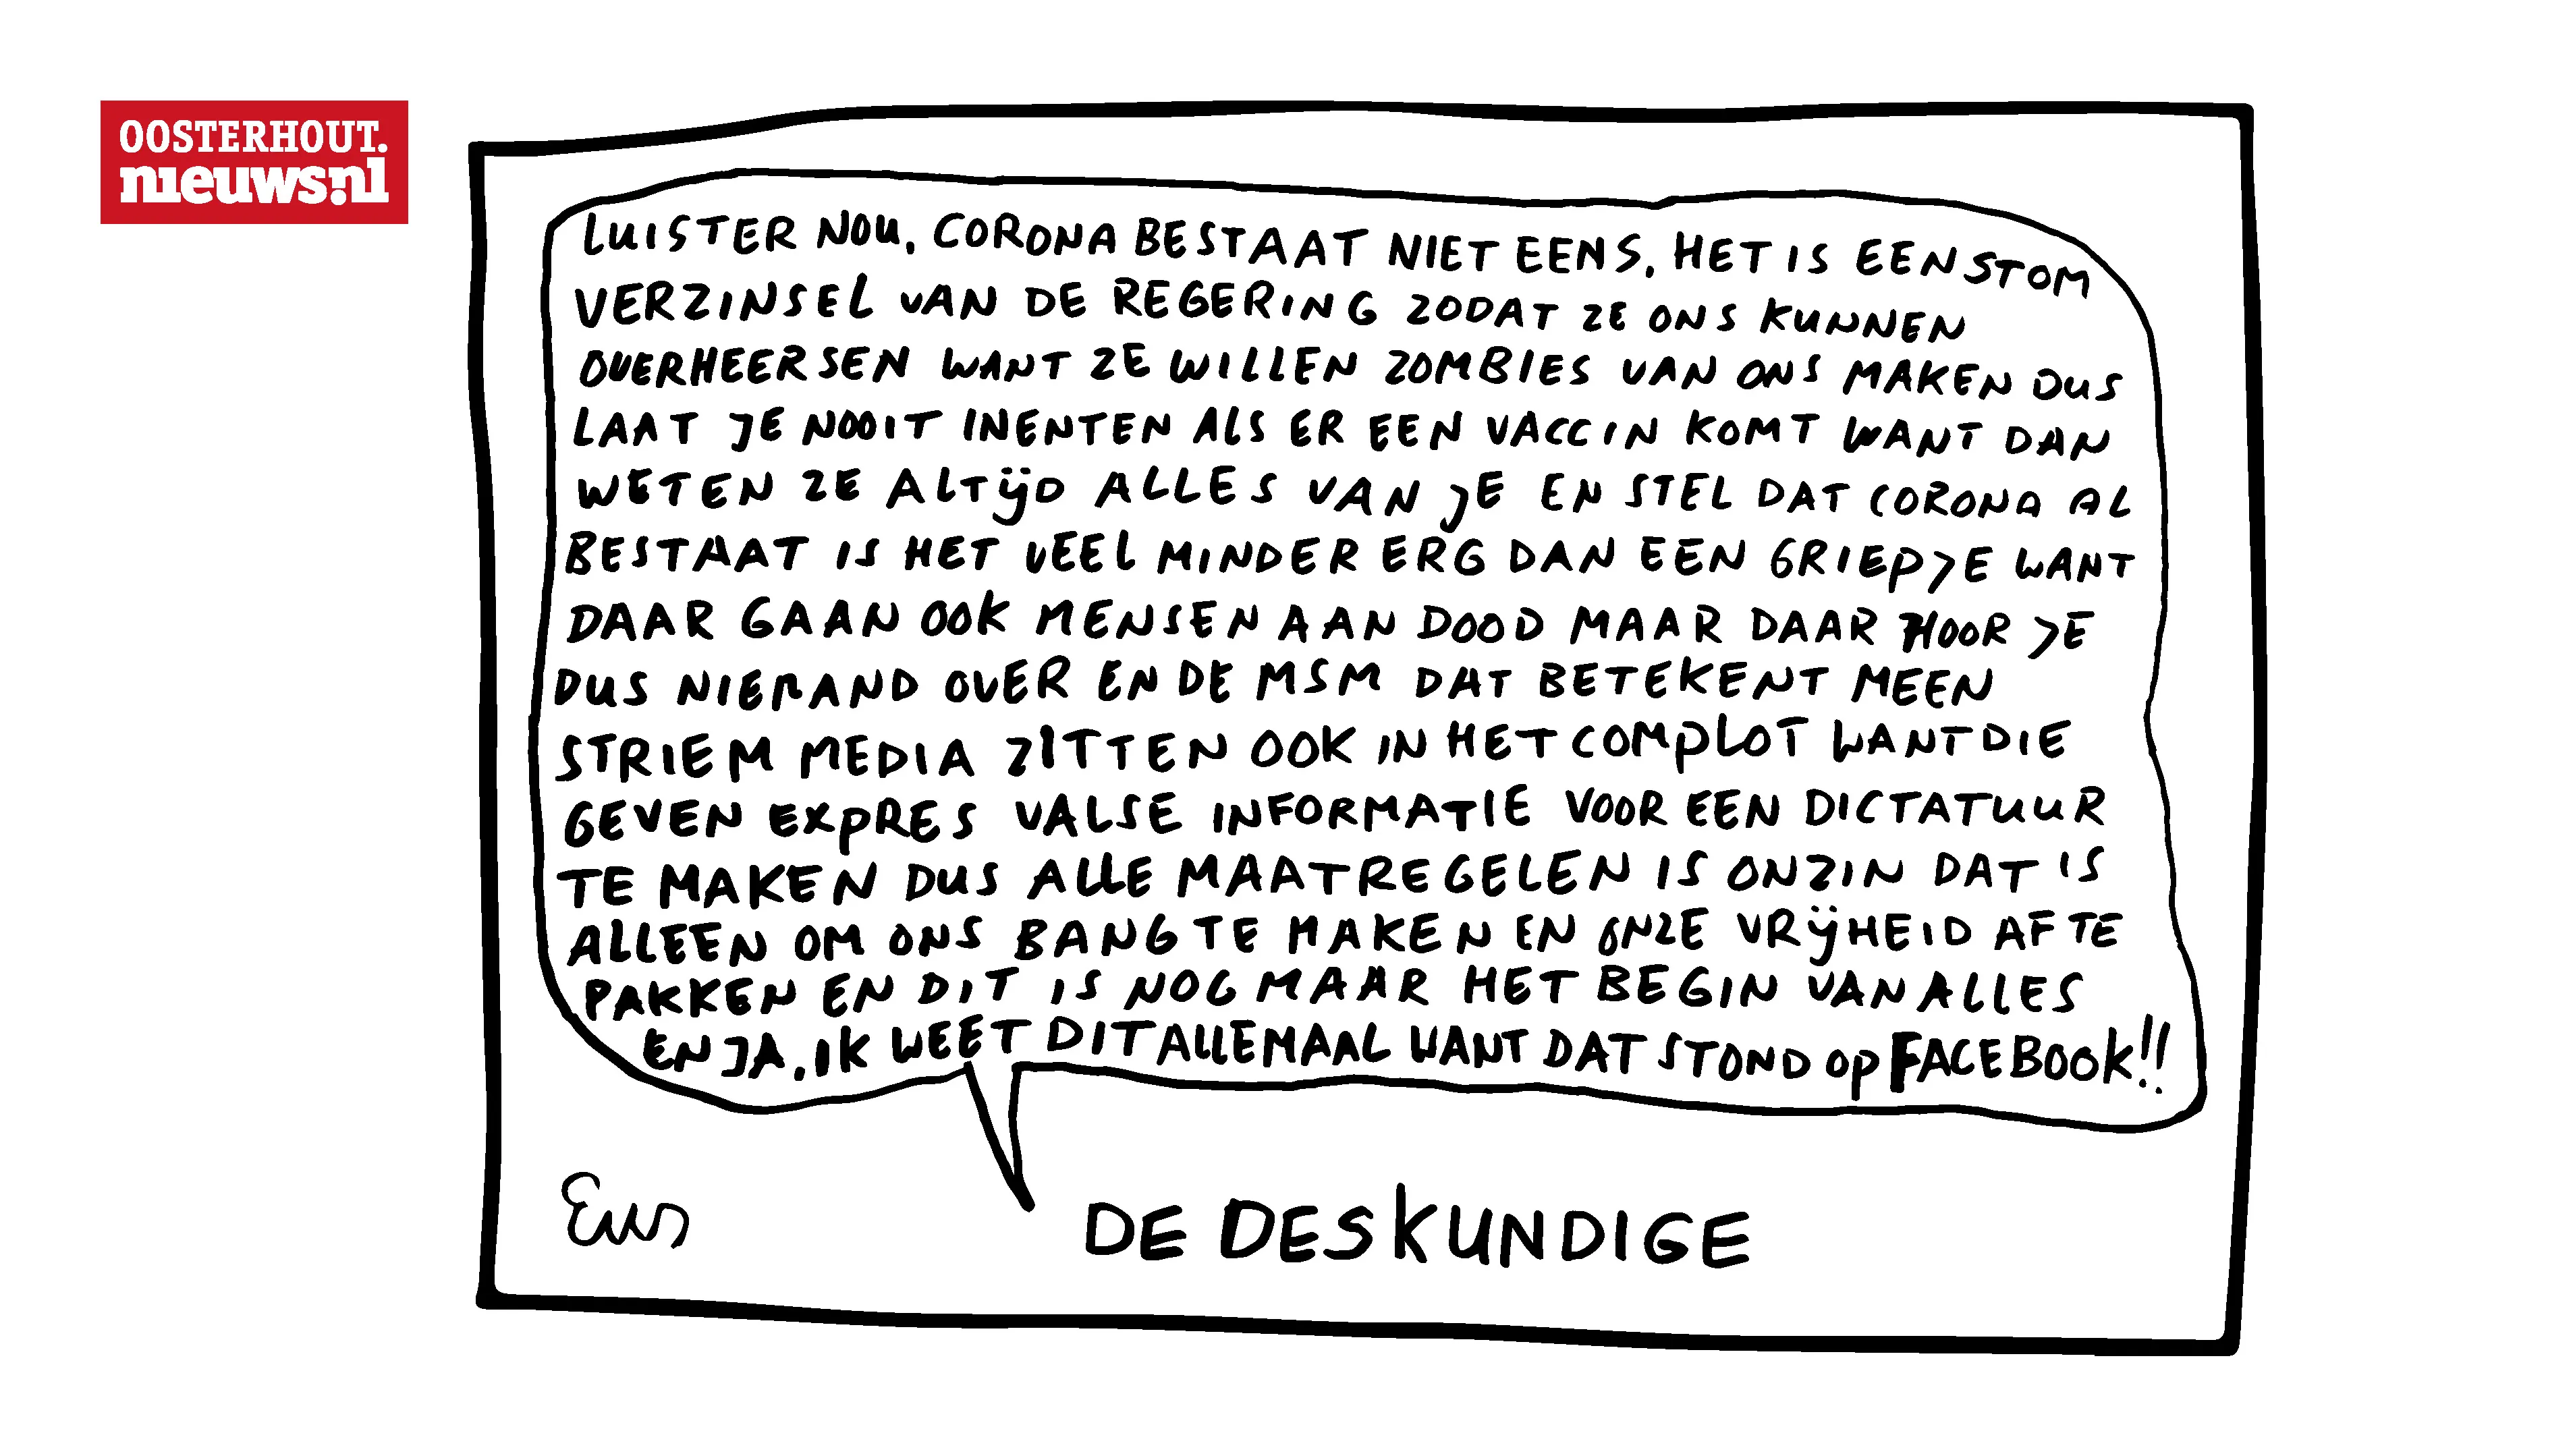 OOSTERHOUT.
nieuws.nl
LUISTER NOU, CORONA BESTAAT NIET EENS, HET IS EEN STOM
VERZINSEL VAN DE REGERING ZODAT ZE ONS KUNNEN
OVERHEERSEN WANT ZE WILLEN ZOMBIES VAN ONS MAKEN DUS
LAAT JE NOOIT INENTEN ALS ER EEN VACCIN KOMT WANT DAN
WETEN ZE ALTIJD ALLES VAN JE EN STEL DAT CORONA AL
BESTAAT IS HET VEEL MINDER ERG DAN EEN GRIEPJE WANT
DAAR GAAN OOK MENSEN AAN DOOD MAAR DAAR HOOR JE
DUS NIEMAND OVER EN DE MSM DAT BETEKENT MEEN
STRIEM MEDIA ZITTEN OOK IN HET COMPLOT WANT DIE
GEVEN EXPRES VALSE INFORMATIE VOOR EEN DICTATUUR
TE MAKEN DUS ALLE MAATREGELEN IS ONZIN DAT IS
ALLEEN OM ONS BANG TE MAKEN EN ONZE VRIJHEID AF TE
PAKKEN EN DIT IS NOG MAAR HET BEGIN VAN ALLES
EN JA, IK WEET DIT ALLEMAAL WANT DAT STOND OP FACEBOOK!!
Eus
DE DESKUNDIGE